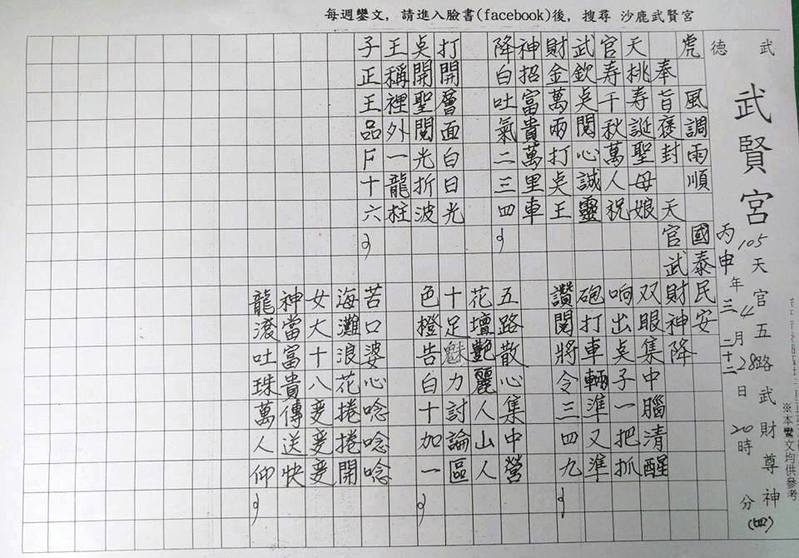 每週鑾文，請進入臉書(facebook)後，搜尋 沙鹿武賢宮
武德
武賢宮
天官五路武財尊神(四)
105年4月28日20時 分
丙申 三 二十二
※本鸞文均供參考
虎 風調雨順 國泰民安
奉旨褒封 天官武財神降
天桃壽誕聖母娘
官壽千秋萬人祝
武欽桌閱心誠靈
財金萬兩打桌王
神招富貴萬里車
降白吐氣二三四
双眼集中腦清醒
响出桌子一把抓
砲打車輛準又準
讚閱將令三四九
打開層面白日光
桌開聖閱光折波
王稱裡外一龍柱
子正王品F十六
五路散心集中營
花壇艷麗人山人
十足魅力討論區
色橙告白十加一
苦口婆心唸唸唸
海灘浪花捲捲開
女大十八変変変
神當富貴傳送快
龍滾吐珠萬人仰